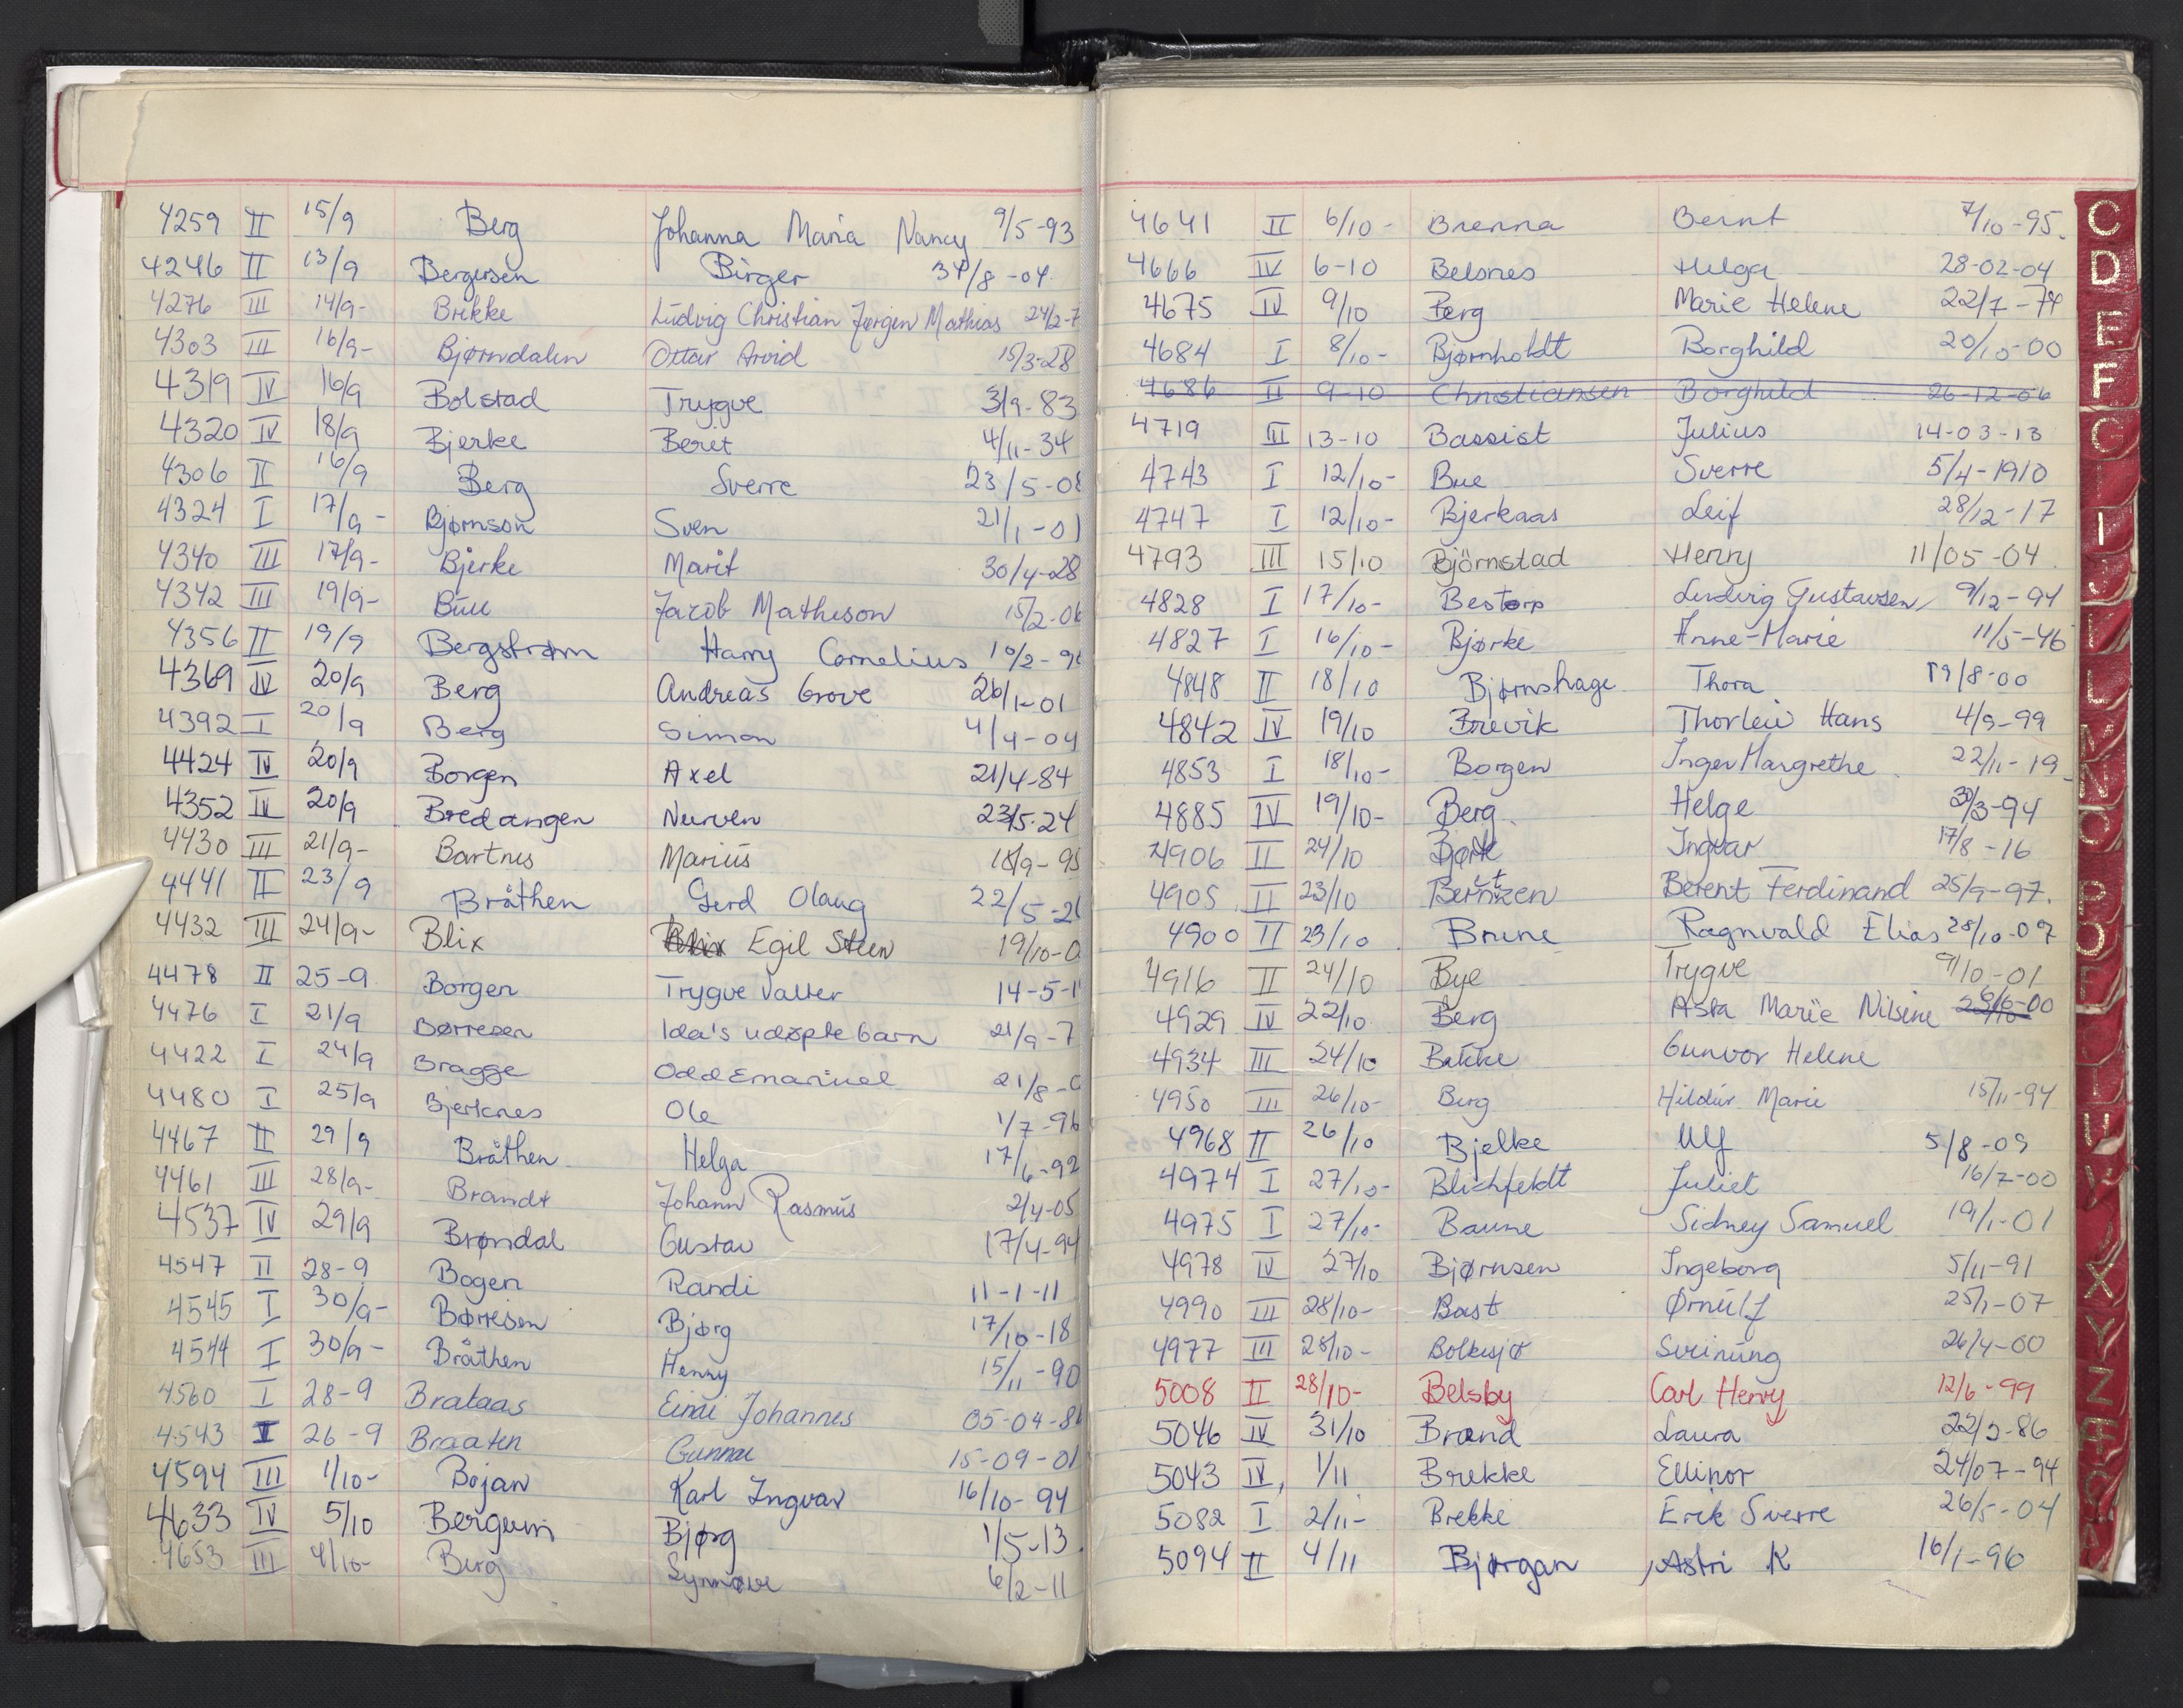 4259 II 15/9 Berg Johanna Maria Nancy 9/5-93
4246 II 13/9 Bergersen Birger 31/8-04.
4276 III 14/9- Brekke Ludvig Christian Jørgen Mathias 24/2-7
4303 III 16/9- Bjørndalen Ottar Arvid 15/3-28
4319 IV 16/9 Bolstad Trygve 3/9-83
4320 IV 18/9 Bjerke Beret 4/11-34
4306 II 16/9 Berg Sverre 23/5-08
4324 I 17/9- Bjørnson Sven 21/1-01
4340 III 17/9- Bjerke Marit 30/4-28
4342 III 19/9- Bull Jacob Matheson 15/2-06
4356 II 19/9 Bergstrøm Harry Cornelius 10/2-9
4369 IV 20/9 Berg Andreas Grove 26/1-01
4392 I 20/9 Berg Simon 4/4-04
4424 IV 20/9 Borgen Axel 21/4-84
4352 IV 20/9 Bredangen Nurven 23/5-24
4430 III 21/9- Bartnes Marius 18/9-95
4441 II 23/9 Bråthen Gerd Olaug 22/5-2
4432 III 24/9- Blix Egil Steen 19/10-0
4478 II 25-9 Borgen Trygve Valter 14-5-1
4476 I 21/9 Børresen Ida's udøpte barn 21/9-7
4422 I 24/9 Bragge Odd Emanuel 21/8-0
4480 I 25/9 Bjerknes Ole 1/7-96
4467 II 29/9 Bråthen Helga 17/6-92
4461 III 28/9- Brandt Johann Rasmus 2/4-05
4537 IV 29/9 Brøndal Gustav 17/4-94
4547 II 28-9 Bogen Randi 11-1-11
4545 I 30/9- Børresen Bjørg 17/10-18
4544 I 30/9- Bråthen Henny 15/11-90
4560 I 28-9 Brataas Einar Johannes 05-04-8
4543 I 26-9 Braaten Gunnar 15-09-01
4594 III 1/10- Bojan Karl Ingvar 16/10-94
4633 IV 5/10 Bergum Bjørg 1/5-13
4653 III 4/10- Berg Synnøve 6/2-11
4641 II 6/10- Brenna Bernt 7/10-95.
4666 IV 6-10 Belsnes Helga 28-02-04
4675 IV 9/10 Berg Marie Helene 22/7-74
4684 I 8/10- Bjørnholdt Borghild 20/10-00
4686 II 9-10 Christiansen Borghild 26-12-06
4719 III 13-10 Bassist Julius 14-03-13
4743 I 12/10- Bue Sverre 5/4-1910
4747 I 12/10- Bjerkaas Leif 28/12-17
4793 III 15/10 Björnstad Henry 11/05-04
4828 I 17/10- Bestorp Ludvig Gustavsen 9/12-94
4827 I 16/10- Bjørke Anne-Marie 11/5-46
4848 II 18/10 Bjørnshage Thora 19/8-00
4842 IV 19/10 Brevik Thorleiv Hans 4/9-99
4853 I 18/10- Borgen Inger Margrethe 22/11-19
4885 IV 19/10- Berg Helge 31/3-94
4906 II 24/10 Bjørk Ingvar 17/8-16
4905 II 23/10 Berntzen Berent Ferdinand 25/9-97.
4900 II 23/10 Brune Ragnvald Elias 28/10-07
4916 II 24/10 Bye Trygve 9/10-01
4929 IV 22/10 Berg Asta Marie Nilsine
4934 III 24/10 Bakke Gunvor Helene
4950 III 26/10- Berg Hildur Marie 15/11-94
4968 II 26/10 Bjelke Ulf 5/8-09
4974 I 27/10- Blichfeldt Juliet 16/7-00
4975 I 27/10- Baume Sidney Samuel 19/1-01
4978 IV 27/10 Bjørnsen Ingeborg 5/11-91
4990 III 28/10- Bast Ørnulf 25/1-07
4977 III 28/10- Bolkesjø Sveinung 26/4-00
5008 II 28/10- Belsby Carl Henry 12/6-99
5046 IV 31/10 Brand Laura 22/2-86
5043 IV, 1/11 Brekke Ellinor 24/07-94
5082 I 2/11- Brekke Erik Sverre 26/5-04
5094 II 4/11 Bjørgan Astri K 16/1-96
C
D
E
F
G
I
J
L
N
O
P
X
Y
Z